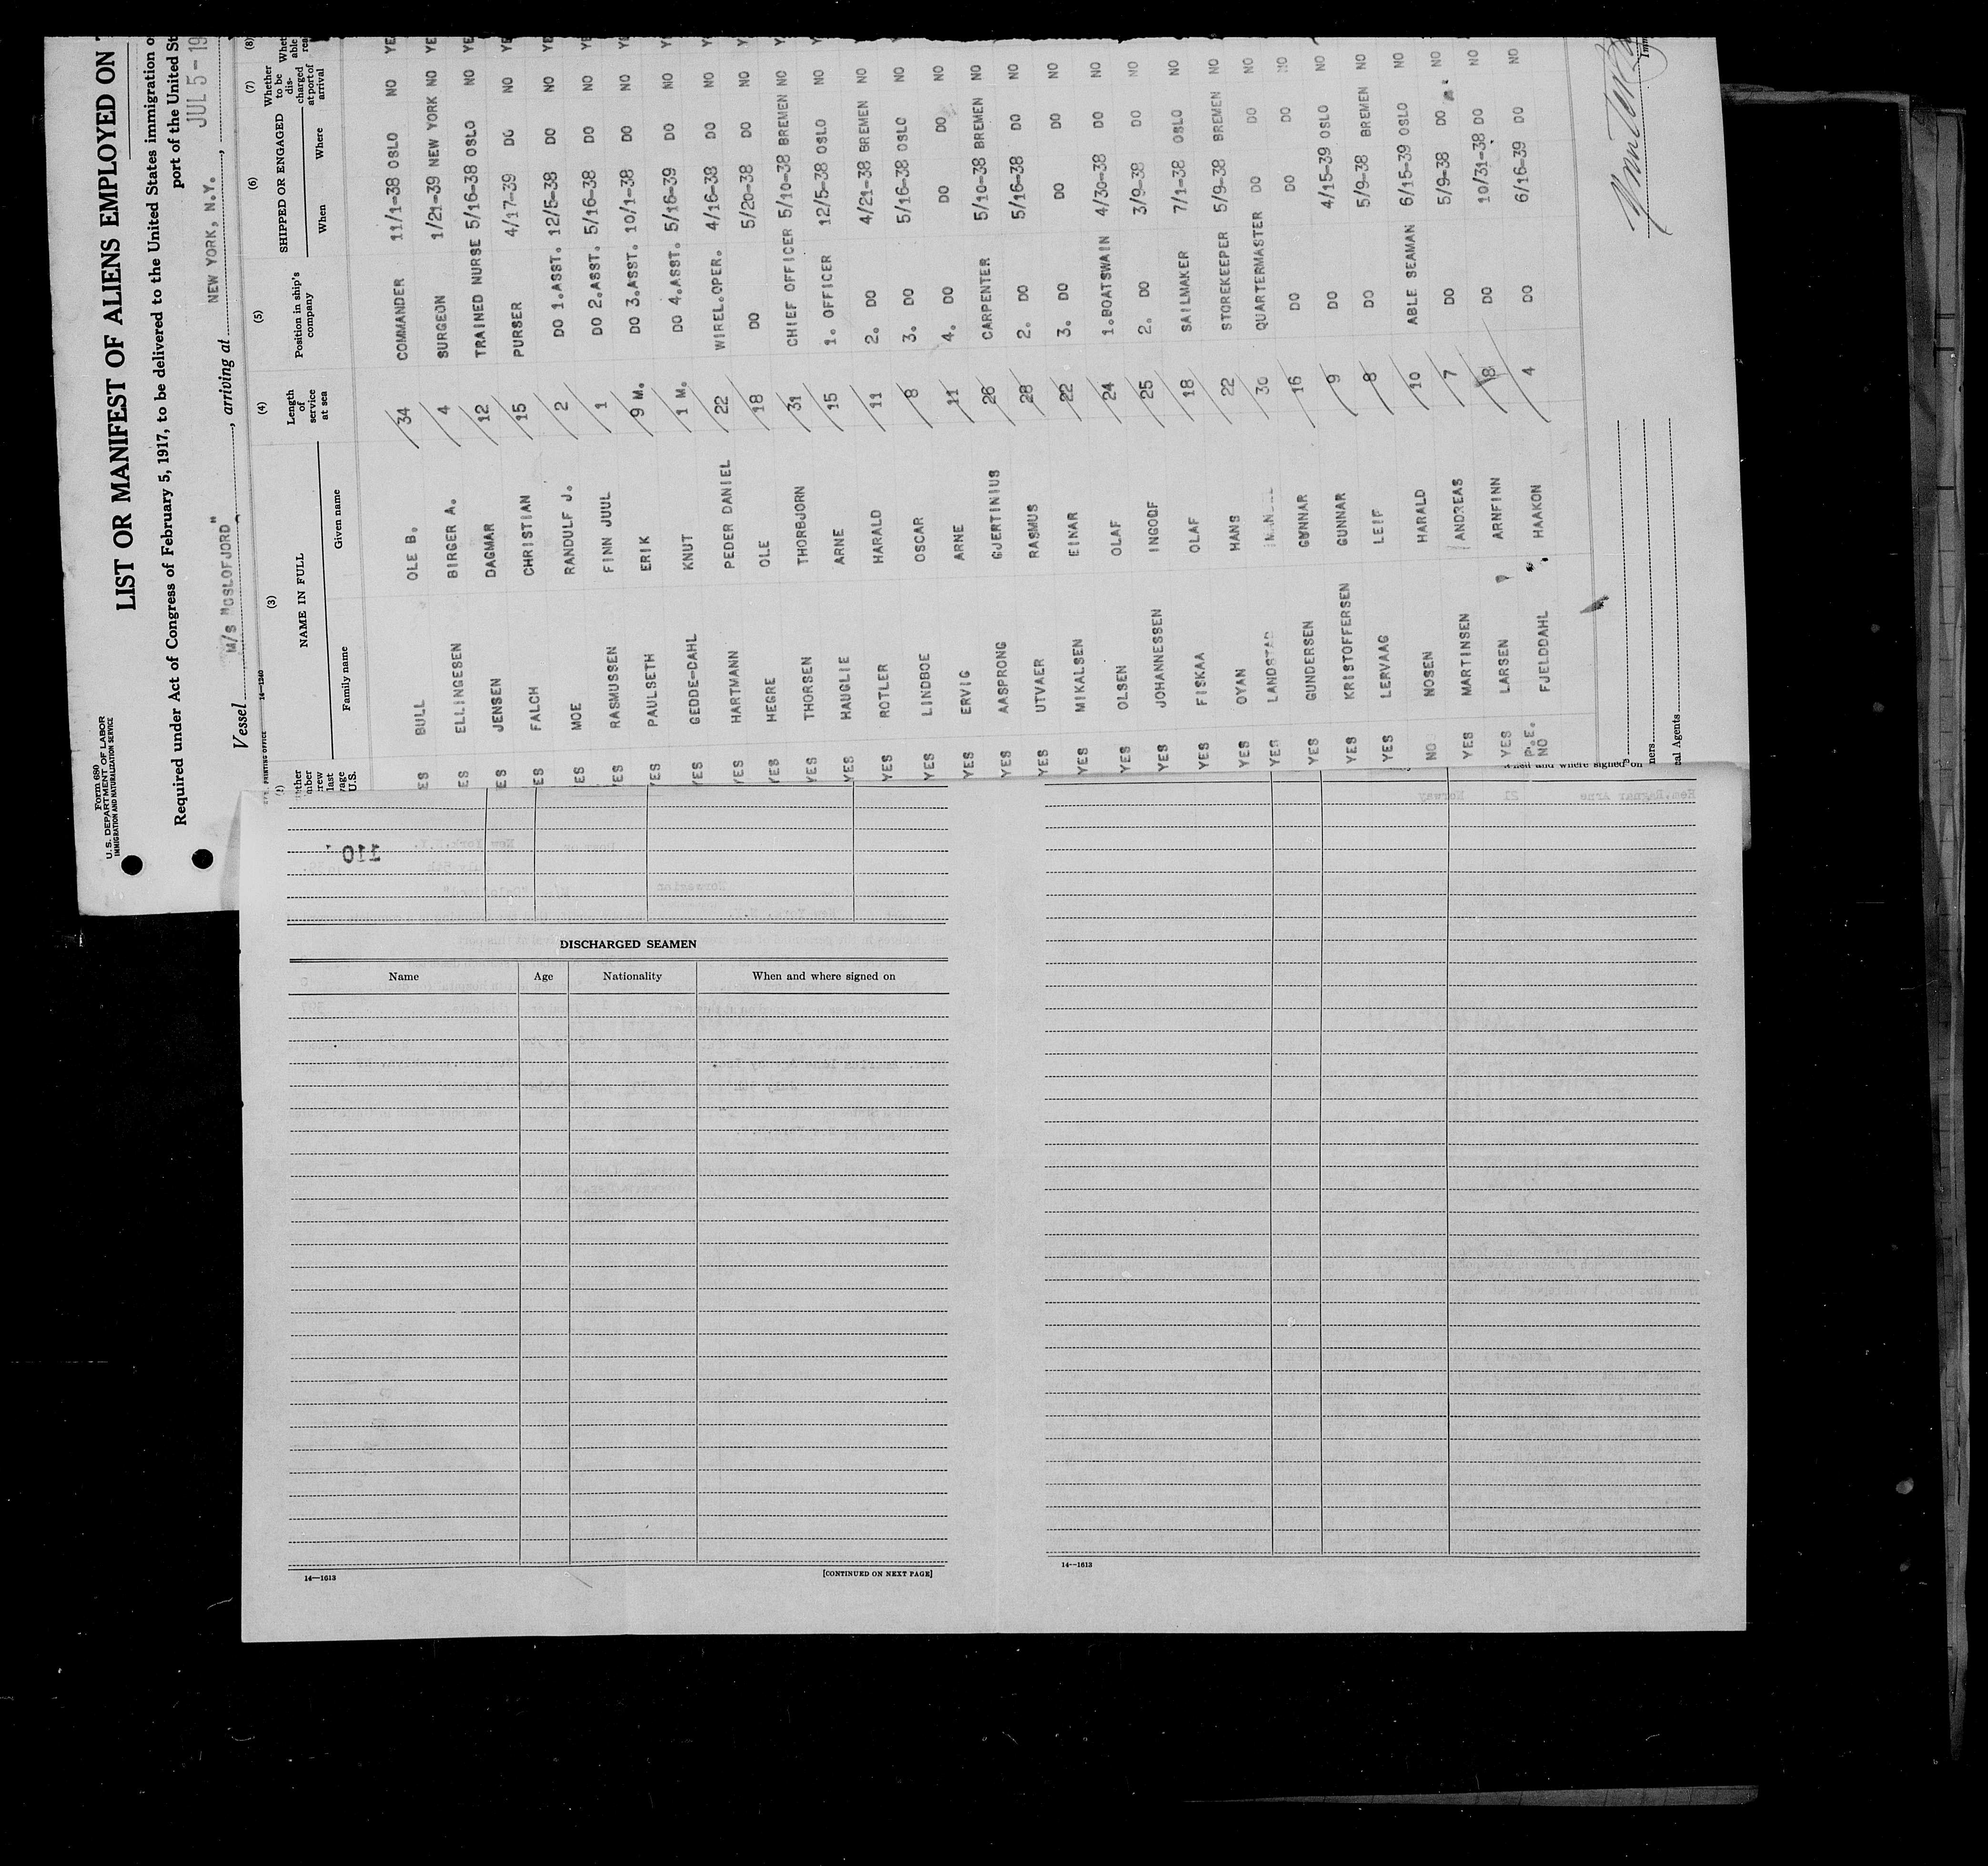 Form 680
U. S. DEPARTMENT OF LABOR
IMMIGRATION AND NATURALIZATION SERVICE
LIST OR MANIFEST OF ALIENS EMPLOYED ON
Required under Act of Congress of February 5, 1917, to be delivered to the United States immigration
port of the United St
Vessel M/S "OSLOFJORD", arriving at NEW YORK, N.Y., JUL 5 - 19
14—1240
(3) (4) (5) (6) (7) (8)
NAME IN FULL Length of service at sea Position in ship's company SHIPPED OR ENGAGED Whether to be discharged at port of arrival
Family name Given name When Where
ES BULL OLE B. 34 COMMANDER 11/1-38 OSLO NO YE
ES ELLINGESEN BIRGER A. 4 SURGEON 1/21-39 NEW YORK NO YE
ES JENSEN DAGMAR 12 TRAINED NURSE 5/16-38 OSLO NO YE
ES FALCH CHRISTIAN 15 PURSER 4/17-39 DO NO YE
ES MOE RANDULF J. 2 DO 1.ASST. 12/5-38 DO NO YE
ES RASMUSSEN FINN JUUL 1 DO 2.ASST. 5/16-38 DO NO YE
YES PAULSETH ERIK 9 M. DO 3.ASST. 10/1-38 DO NO YE
YES GEDDE-DAHL KNUT 1 M. DO 4.ASST. 5/16-39 DO NO Y
YES HARTMANN PEDER DANIEL 22 WIREL.OPER. 4/16-38 DO NO Y
YES HEGRE OLE 18 DO 5/20-38 DO NO Y
YES THORSEN THORBJORN 31 CHIEF OFFICER 5/10-38 BREMEN NO Y
YES HAUGLIE ARNE 15 1. OFFICER 12/5-38 OSLO NO Y
YES ROTLER HARALD 11 2. DO 4/21-38 BREMEN NO
YES LINDBOE OSCAR 8 3. DO 5/16-38 OSLO NO
YES ERVIG ARNE 11 4. DO DO DO NO
YES AASPRONG GJERTINIUS 26 CARPENTER 5/10-38 BREMEN NO
YES UTVAER RASMUS 28 2. DO 5/16-38 DO NO
YES MIKALSEN EINAR 22 3. DO DO DO NO
YES OLSEN OLAF 24 1.BOATSWAIN 4/30-38 DO NO
YES JOHANNESSEN INGODF 25 2. DO 3/9-38 DO NO
YES FISKAA OLAF 18 SAILMAKER 7/1-38 OSLO NO
YES OYAN HANS 22 STOREKEEPER 5/9-38 BREMEN NO
YES LANDSTAD 30 QUARTERMASTER DO DO NO
YES GUNDERSEN GUNNAR 16 DO DO DO NO
YES KRISTOFFERSEN GUNNAR 9 DO 4/15-39 OSLO NO
YES LERVAAG LEIF 8 DO 5/9-38 BREMEN NO
NO NOSEN HARALD 10 ABLE SEAMAN 6/15-39 OSLO NO
YES MARTINSEN ANDREAS 7 DO 5/9-38 DO NO
YES LARSEN ARNFINN 18 DO 10/31-38 DO NO
P.E. NO FJELDDAHL HAAKON 4 DO 6/16-39 DO NO
and where signed on
110
DISCHARGED SEAMEN
Name Age Nationality When and where signed on
14—1613
[CONTINUED ON NEXT PAGE]
14—1613